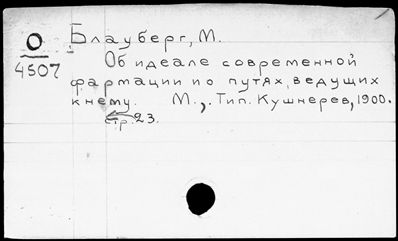 О
4507
Блауберг, М.
Об идеале современной
фармации и о путях, ведущих
к нему. М., Тип. Кушнерев, 1900.
стр. 23.